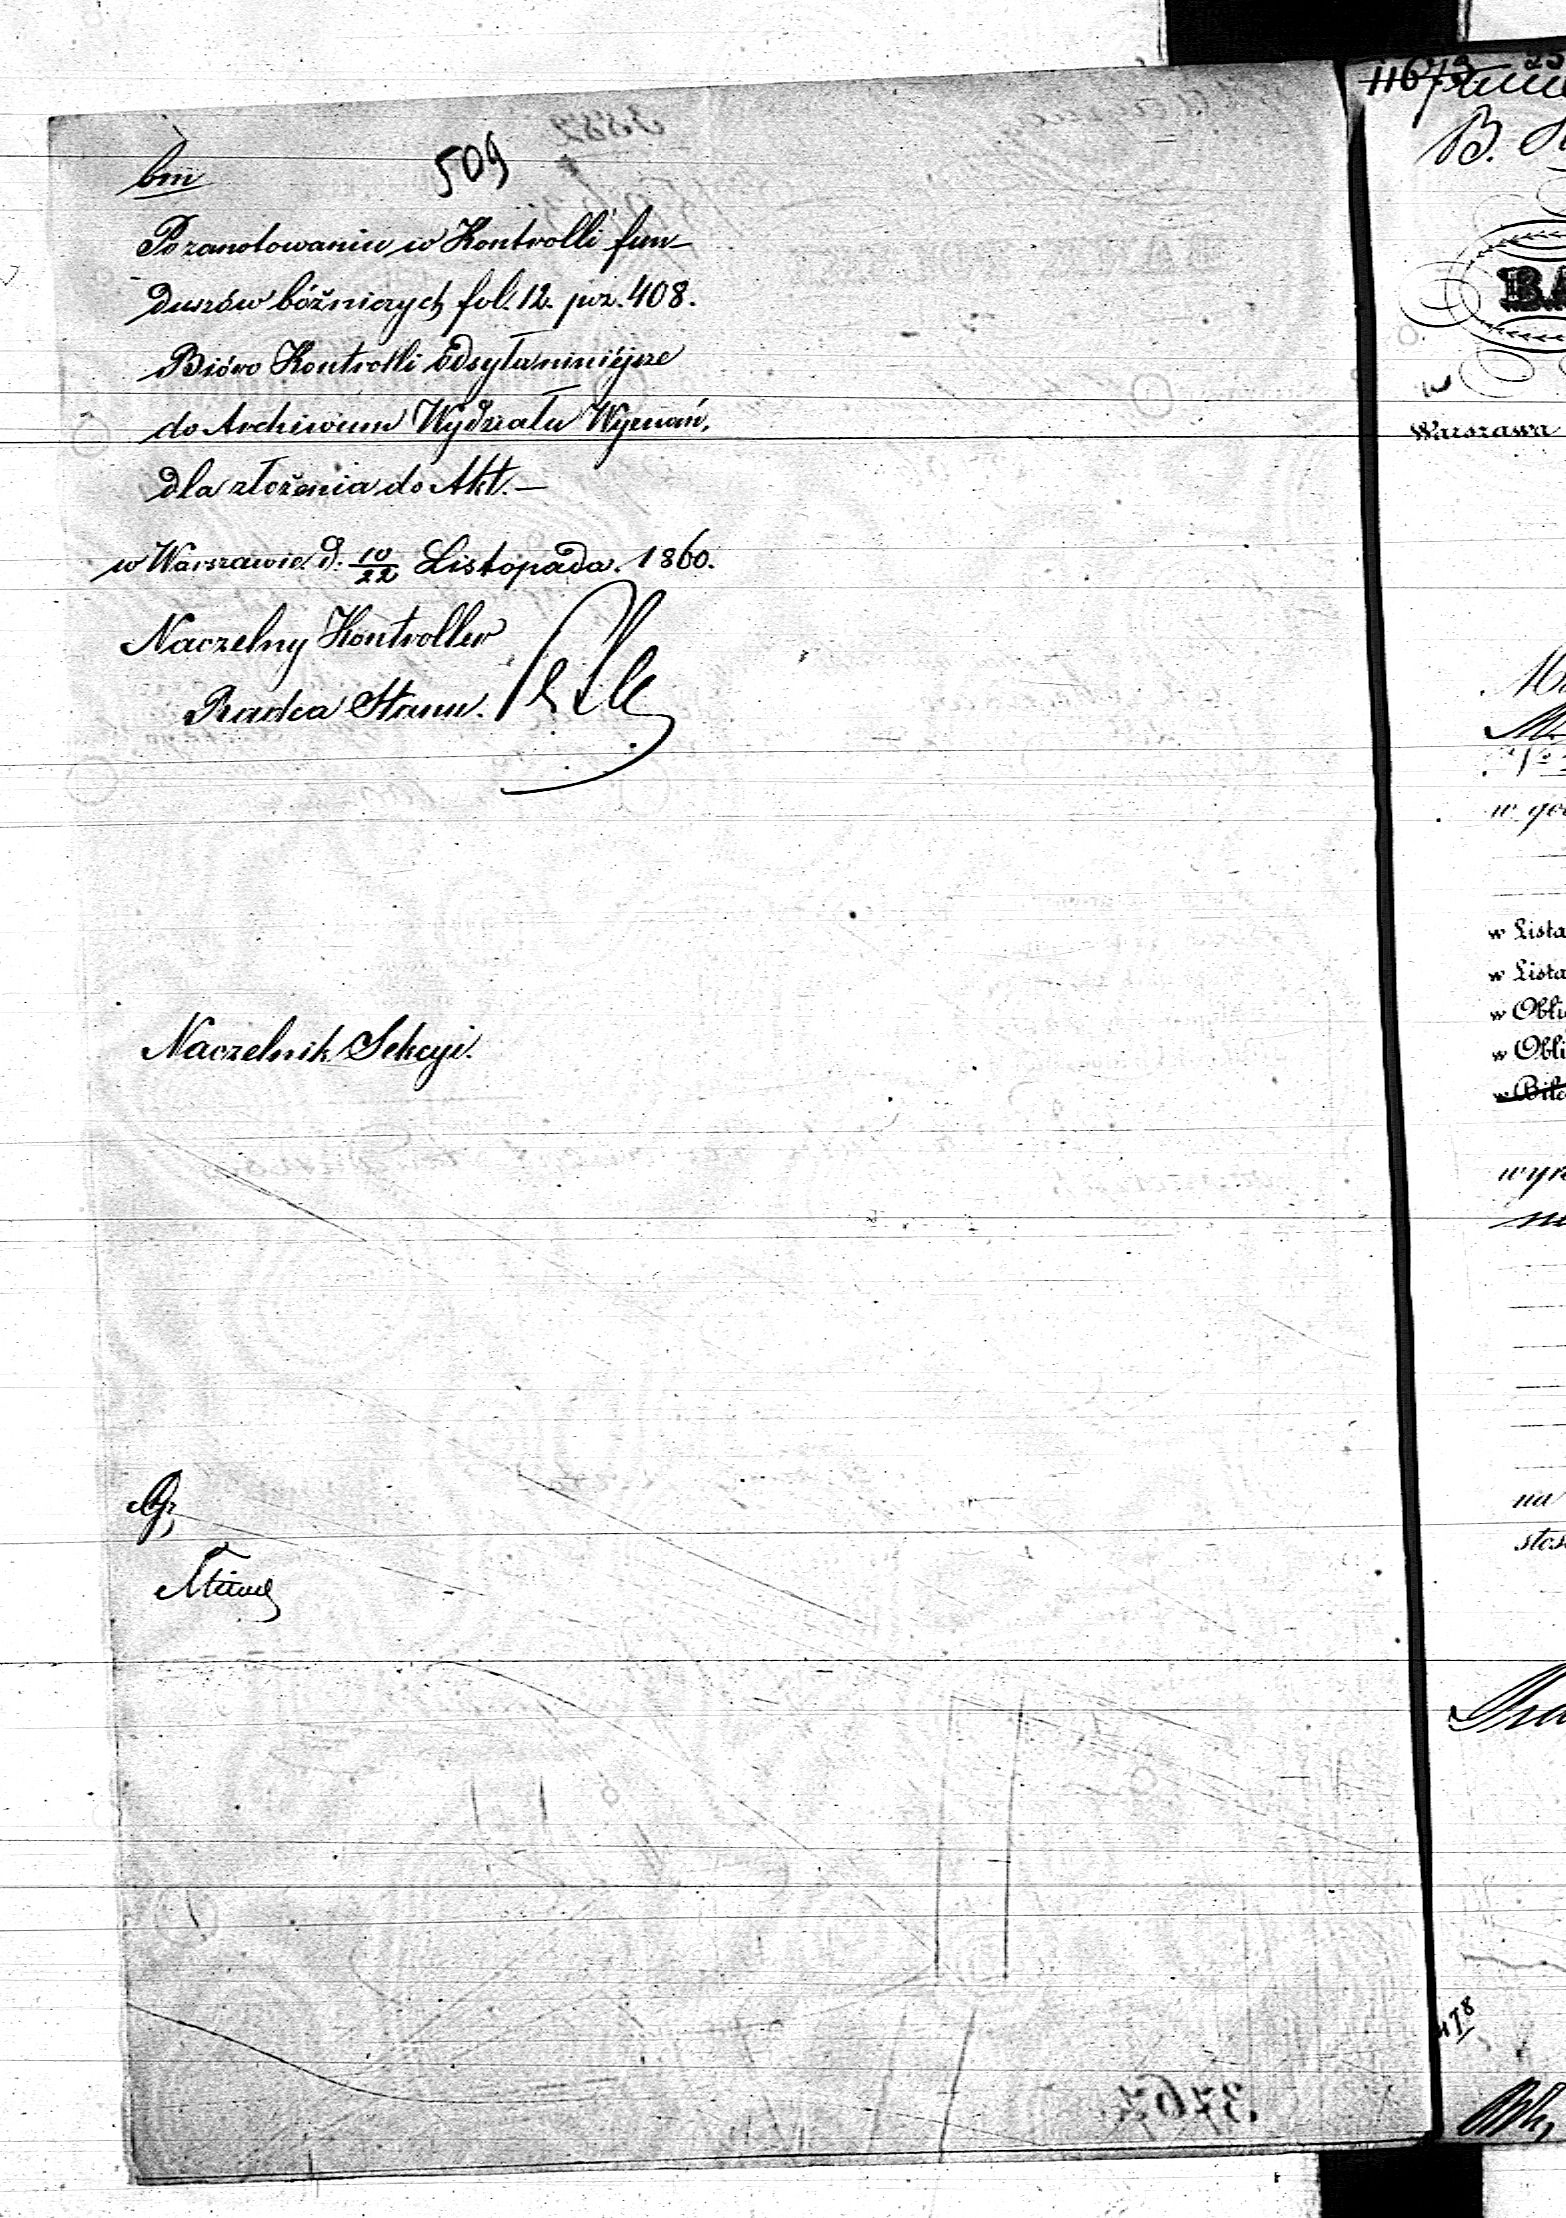 bm
509
Po zanotowaniu w Kontrolli fun-
duszów bóżniczych fol. 12. poz. 408.
Bióro Kontrolli odsyła niniéjsze
do Archiwum Wydziału Wyznań,
dla złożenia do Akt.—
w Warszawie d. 10/22 Listopada. 1860.
Naczelny Kontroller
Radca Stanu.
Naczelnik Sekcyi.
3767
11673
B.
BA
w
Warszawa
w Lista
w Lista
w Obli
w Obli
w Bile
na
478